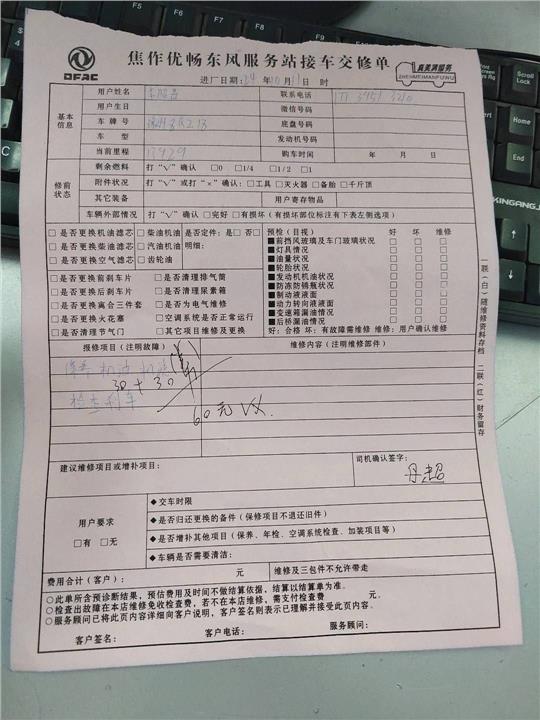 DFAC
焦作优畅东风服务站接车交修单
真美满服务
ZHENMEIMANFUWU
进厂日期:24年10月11日 时
基本信息
用户姓名
联系电话
用户生日 微信号码
车牌号 底盘号码
车型 发动机号码
当前里程 17929 购车时间 年 月 日
修前状态
剩余燃料 打“√”确认 □0 □1/4 □1/2 □1
附件状况 打“√”或打“×”确认:□工具 □灭火器 □备胎 □千斤顶
其它装备 用户寄存物品
车辆外部情况 打“√”确认 □完好 □有损坏(有损坏部位标注有下表左侧选项)
□是否更换机油滤芯 □柴油机油 是否定件:是□否□
□是否更换柴油滤芯 □汽油机油 明细:
□是否更换空气滤芯 □齿轮油
□是否更换前刹车片 □是否清理排气筒
□是否更换后刹车片 □是否清理尿素箱
□是否更换离合三件套 □是否为电气维修
□是否更换火花塞 □空调系统是否正常运行
□是否清理节气门 □其它项目维修及更换
预检(目视) 好 坏 维修
■前挡风玻璃及车门玻璃状况 □ □ □
■灯具情况 □ □ □
■油量状况 □ □ □
■轮胎状况 □ □ □
■发动机机油状况 □ □ □
■防冻防锈瓶状况 □ □ □
■制动液液面 □ □ □
■动力转向液液面 □ □ □
■变速箱漏油情况 □ □ □
■后桥漏油情况 □ □ □
好:合格 坏:有故障需维修 维修:用户确认维修
报修项目(注明故障) 维修内容(注明维修部件)
保养 机油 机滤
30+30
检查刹车
60元 VX
建议维修项目或增补项目:
司机确认签字:
用户要求
□有 □无
◆交车时限
◆是否归还更换的备件(保修项目不退还旧件)
◆是否增补其他项目(保养、年检、空调系统检查、加装项目等)
◆车辆是否需要清洁:
费用合计(客户): 元 维修及三包件不允许带走
○此单所含预诊断结果,预估费用及时间不做结算依据,结算以结算单为准。
○检查出故障在本店维修免收检查费,若不在本店维修,需支付检查费 元。
○服务顾问已将此页内容详细向客户说明,客户签名则表示已理解并接受此页内容。
客户签名: 客户电话: 服务顾问:
一联(白)随维修资料存档 二联(红)财务留存
Print Screen
SysRq
Scroll Lock
Pause
Break
Insert
Home
Delete
End
KINGANGJI